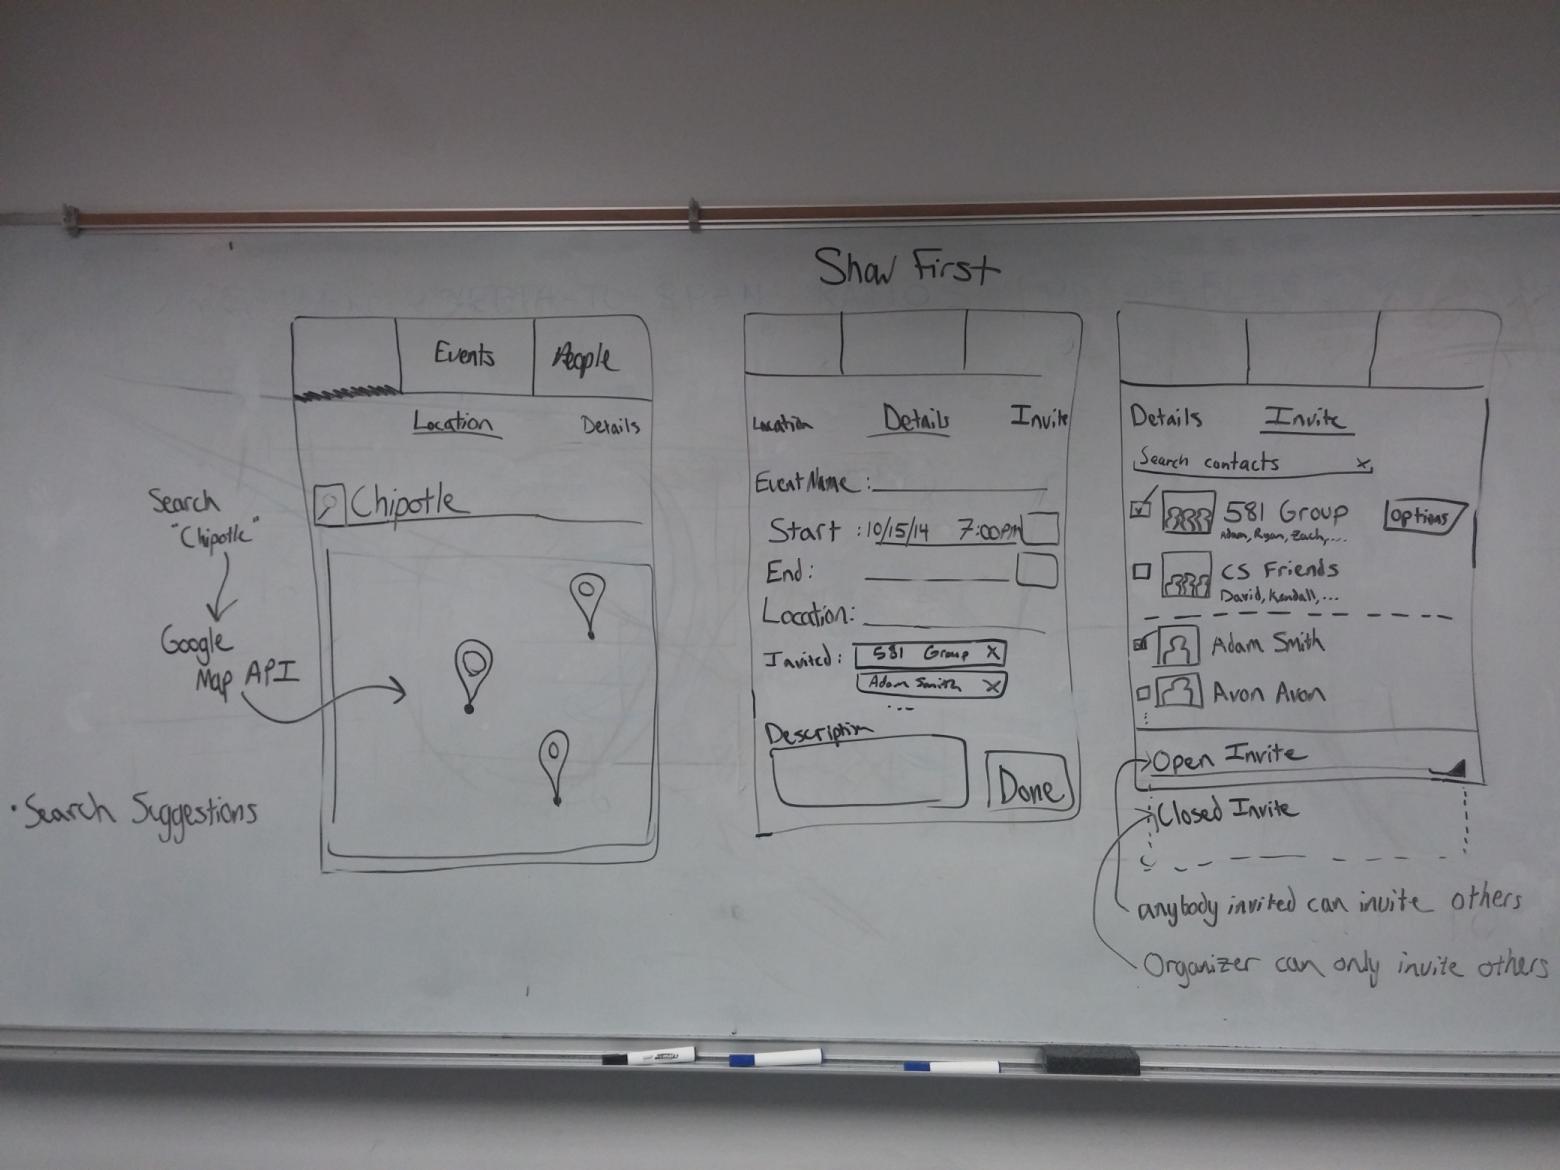 Show First
Events
People
Location
Details
Search
"Chipotle"
Google
Map API
Chipotle
· Search Suggestions
Location
Details
Invite
Event Name:
Start : 10/15/14 7:00pm
End:
Location:
Invited: 581 Group X
Adam Smith X
...
Description
Done
Details
Invite
Search contacts X
581 Group
Adam, Ryan, Zach,...
Options
CS Friends
David, Kendall, ...
Adam Smith
Avon Avon
Open Invite
Closed Invite
anybody invited can invite others
Organizer can only invite others